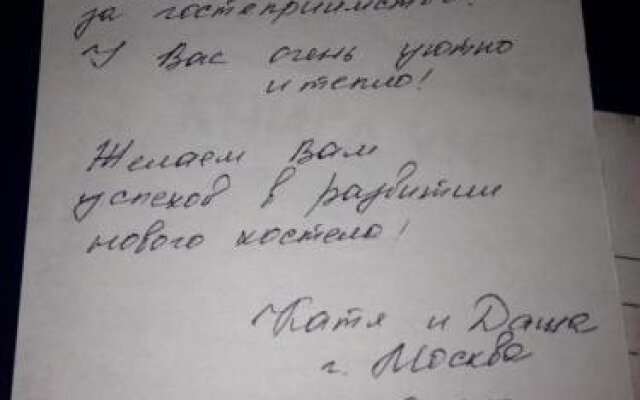 за гостеприимство!
У Вас очень уютно
и тепло!
Желаем Вам
успехов в развитии
нового хостела!
Катя и Даша
г. Москва